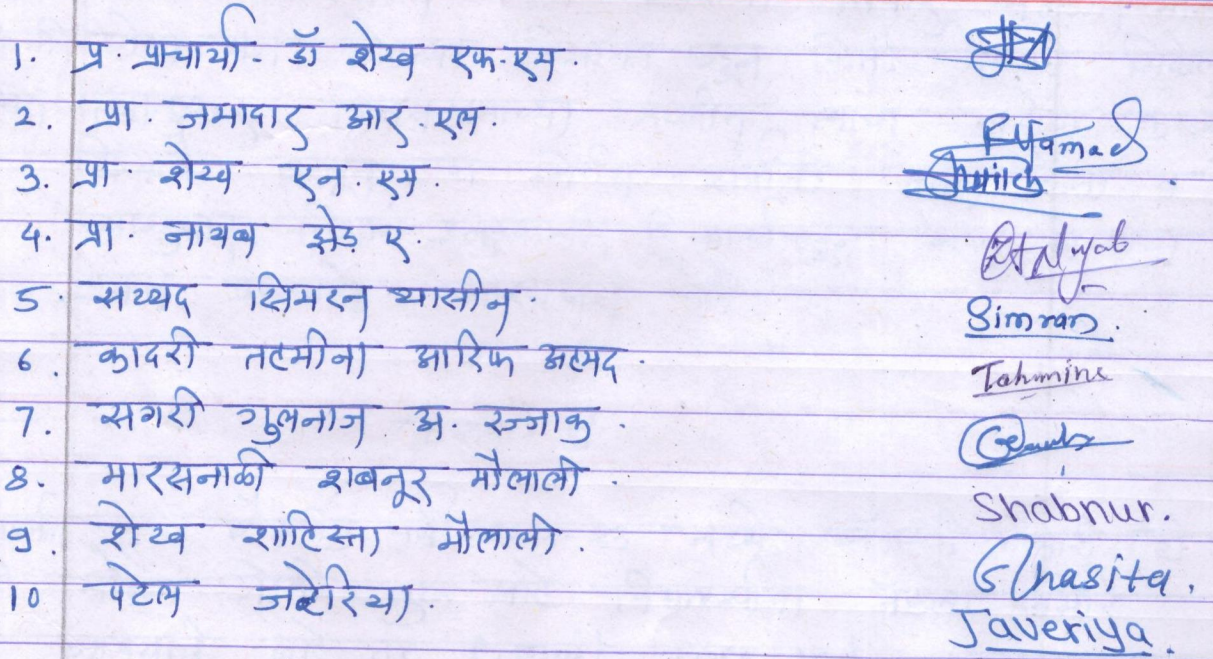 1. प्र. प्राचार्या. डॉ शेख एफ.एम
2. प्रा. जमादार आर.एल.
R Yamad
3. प्रा शेख एन.एम.
4. प्रा. नायब झेड ए.
5. सय्यद सिमरन यासीन.
Simran.
6. कादरी तहमीना आरिफ अहमद.
Tahmine
7. सगरी गुलनाज अ. रज्जाक.
8. मारसनाळी शबनूर मौलाली.
Shabnur.
9. शेख शाहिस्ता मौलाली.
Shasita.
10 पटेल जवेरिया.
Javeriya.